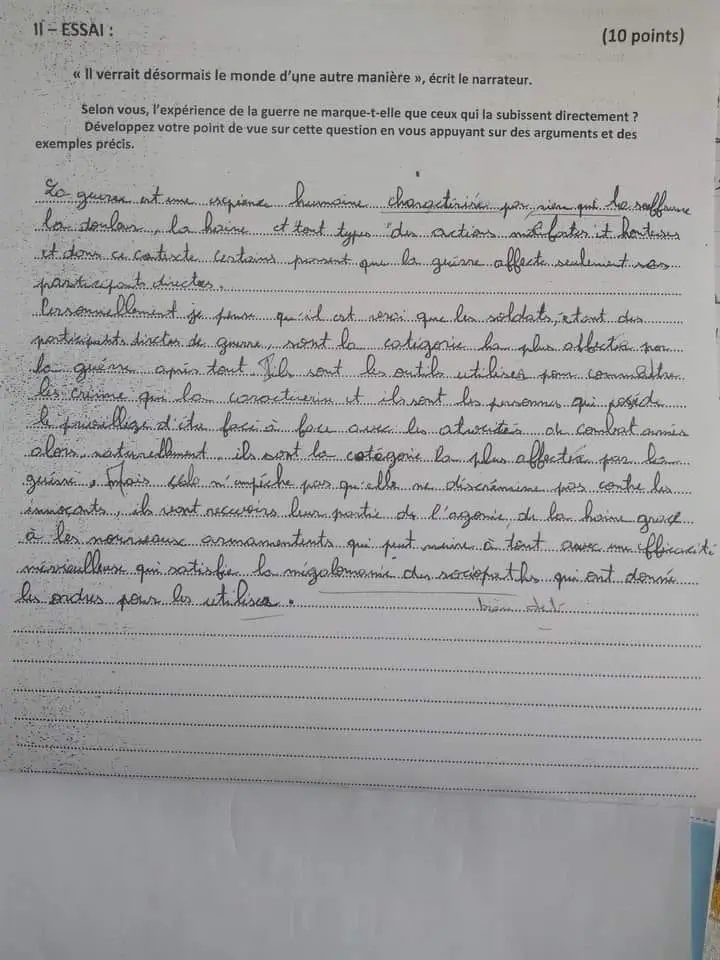 II – ESSAI :
(10 points)
« Il verrait désormais le monde d'une autre manière », écrit le narrateur.
Selon vous, l'expérience de la guerre ne marque-t-elle que ceux qui la subissent directement ?
Développez votre point de vue sur cette question en vous appuyant sur des arguments et des
exemples précis.
La guerre est une expience humaine charactérisée par rien que la souffrance
la douleur, la haine et tout types des actions et honteuses
et dans ce contexte certains pensent que la guèrre affecte seulement ses
participants directes.
Personnellement je pense qu'il est vrai que les soldats, étant des
participants directes de guerre, sont la catégorie la plus affectée par
la guèrre après tout Ils sont les outils utilisés pour commettre
les crime qui la caracterise et ils sont les personnes qui posséde
le privillège d'être face à face avec les atrocités du combat armés
alors naturellement, ils sont la catégorie la plus affectée par la
guèrre. Mais cela n'empéche pas qu'elle ne discrimine pas contre les
innocents, ils vont recevoirs leur partie de l'agonie, de la haine grace
à les nouveaux armamentents qui peut nuire à tout avec une efficacité
mervieulleuse qui satisfie la mégalomanie des sociopathes qui ont donné
les ordres pour les utiliser.
bien dit